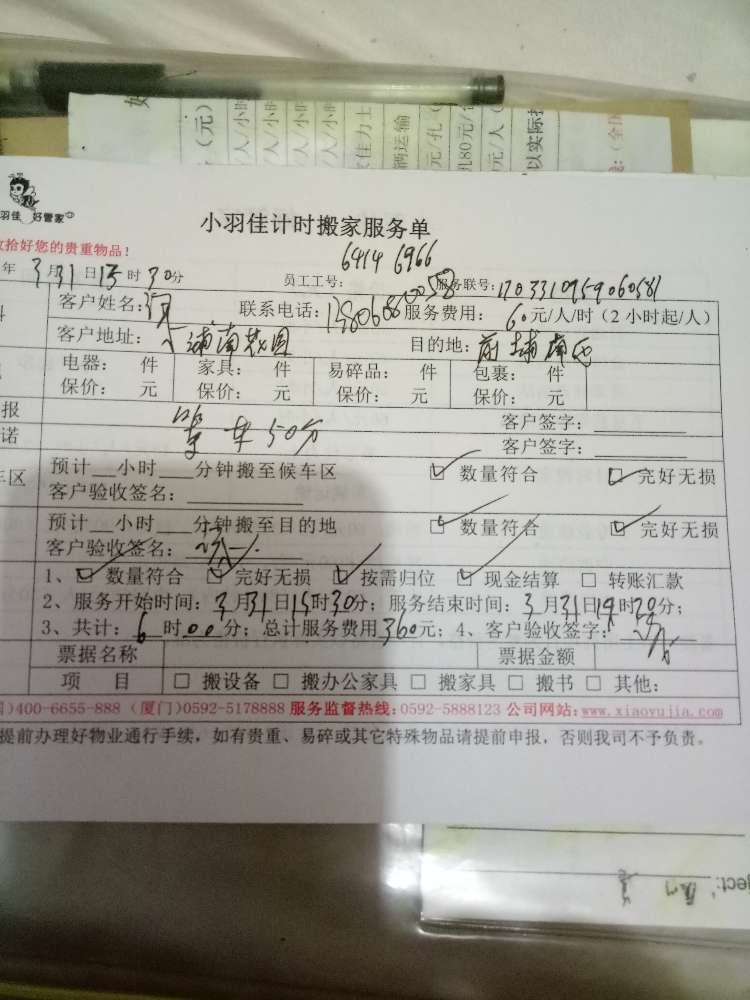 (元)
人/小时
/人/小时
人/小时
/人/小时
家佳力士
辆运输
元/孔(
机80元/台
元/人(
以实际
羽佳 好管家
小羽佳计时搬家服务单
收拾好您的贵重物品！
6414 6966
年 3月31日15时30分 员工工号: 服务联号:1703310959060581
客户姓名: 联系电话: 服务费用: 60元/人/时(2小时起/人)
客户地址: 浦南 目的地: 前埔南
电器: 件 家具: 件 易碎品: 件 包裹: 件
保价: 元 保价: 元 保价: 元 保价: 元
报 客户签字:
诺 等车50分 客户签字:
车区 预计__小时___分钟搬至候车区 ☑ 数量符合 ☑ 完好无损
客户验收签名:
预计__小时___分钟搬至目的地 ☑ 数量符合 ☑ 完好无损
客户验收签名:
1、☑ 数量符合 ☑ 完好无损 ☑ 按需归位 ☑ 现金结算 □ 转账汇款
2、服务开始时间: 3月31日15时30分; 服务结束时间: 3月31日19时20分;
3、共计: 6时00分; 总计服务费用360元; 4、客户验收签字:
票据名称 票据金额
项 目 □ 搬设备 □ 搬办公家具 □ 搬家具 □ 搬书 □ 其他:
)400-6655-888 (厦门)0592-5178888 服务监督热线:0592-5888123 公司网站:www.xiaoyujia.com
提前办理好物业通行手续，如有贵重、易碎或其它特殊物品请提前申报，否则我司不予负责。